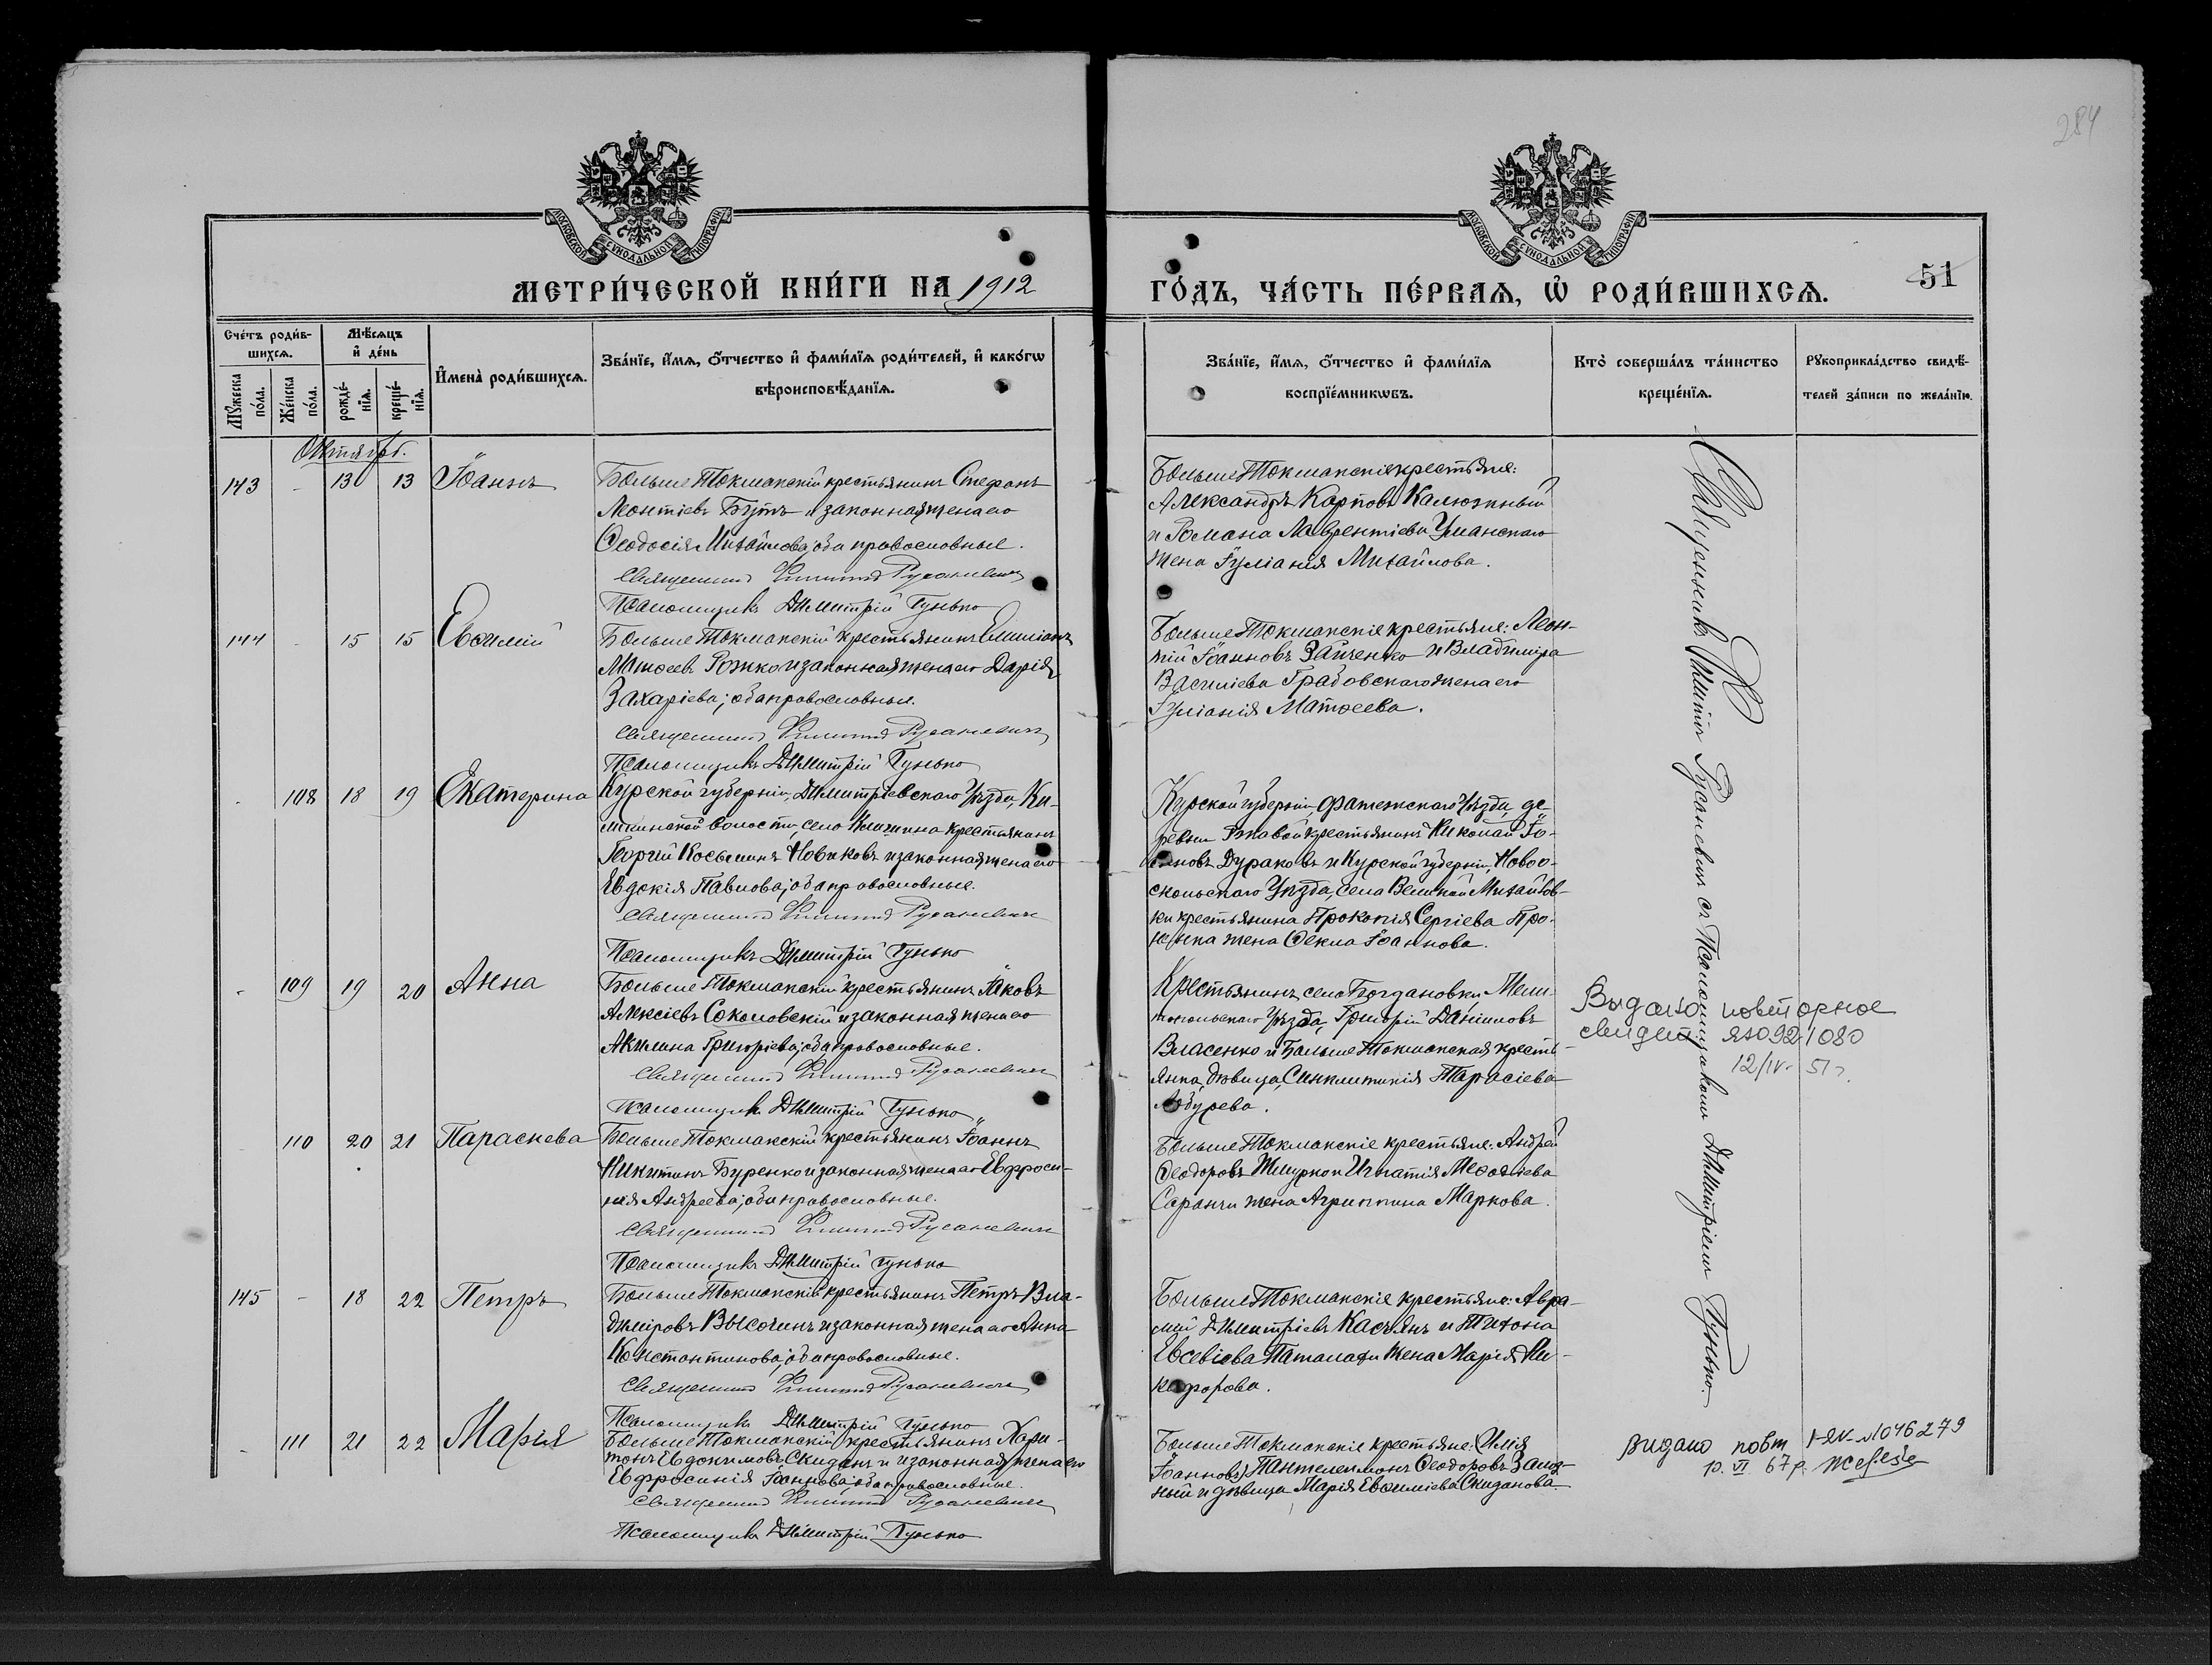 284
МОСКОВСКОЙ СѴНОДАЛЬНОЙ ТИПОГРАФІИ
МОСКОВСКОЙ СѴНОДАЛЬНОЙ ТИПОГРАФІИ
МЕТРИ́ЧЕСКОЙ КНИ́ГИ НА 1912
ГО́ДЪ, ЧА́СТЬ ПЕ́РВАѦ, Ѡ҆ РОДИ́ВШИХСѦ.
51
Сче́тъ роди́в-
шихсѧ.
Мѣ́сѧцъ
и҆ де́нь
И҆мена̀ роди́вшихсѧ.
Зва́нїе, и҆́мѧ, ѻ҆́тчество и҆ фами́лїѧ роди́телей, и҆ како́гѡ
вѣроисповѣ́данїѧ.
Мꙋ́жеска
по́ла.
Же́нска
по́ла.
рожде́-
нїѧ.
креще́-
нїѧ.
Зва́нїе, и҆́мѧ, ѻ҆́тчество и҆ фами́лїѧ
воспрїе́мникѡвъ.
Кто̀ соверша́лъ та́инство
креще́нїѧ.
Рꙋкоприкла́дство свидѣ́-
телей за́писи по жела́нїю.
Октябрь.
143 - 13 13 Іоаннъ
Больше Токмакскій крестьянинъ Стефанъ
Леонтіевъ Бутъ и законная жена его
Ѳеодосія Михайлова; оба православные.
Священникъ Русаневичъ
Псаломщикъ Димитрій Гунько
Больше Токмакскіе крестьяне:
Александръ Карповъ Калюжный
и Романа Лаврентіева Уманскаго
жена Іуліанія Михайлова.
144 - 15 15 Евѳимій
Больше Токмакскій крестьянинъ Емиліанъ
Моисеевъ Рожко и законная жена его Дарія
Захаріева; оба православные.
Священникъ Русаневичъ
Псаломщикъ Димитрій Гунько
Больше Токмакскіе крестьяне: Леон-
тій Іоанновъ Зайченко и Владиміра
Василіева Грабовскаго жена его
Іуліанія Матѳеева.
- 108 18 19 Екатерина
Курской губерніи, Димитріевскаго Уѣзда, Ки-
ликинской волости, села крестьянинъ
Георгій Косьминъ Новиковъ и законная жена его
Евдокія Павлова; оба православные.
Священникъ Русаневичъ
Псаломщикъ Димитрій Гунько
Курской губерніи, Фатежскаго Уѣзда, де-
ревни Ржавой крестьянинъ Николай Іо-
анновъ Дураковъ и Курской губерніи, Новоо-
скольскаго Уѣзда, села Великой Михайлов-
ки крестьянина Прокопія Сергіева
жена Ѳекла Іоаннова.
- 109 19 20 Анна
Больше Токмакскій крестьянинъ Іаковъ
Алексіевъ Соколовскій и законная жена его
Акилина Григоріева; оба православные.
Священникъ Русаневичъ
Псаломщикъ Димитрій Гунько
Крестьянинъ села Богдановки, Мели-
топольскаго Уѣзда, Григорій Даніиловъ
Власенко и Больше Токмакская кресть-
янка, дѣвица, Синклитикія Тарасіева
Выдано повторное
свидет ЯЮ 921080
12/IV - 51 г.
- 110 20 21 Параскева
Больше Токмакскій крестьянинъ Іоаннъ
Никитинъ Буренко и законная жена его Евфроси-
нія Андреева; оба православные.
Священникъ Русаневичъ
Псаломщикъ Димитрій Гунько
Больше Токмакскіе крестьяне: Андрей
Ѳеодоровъ Жмурко и Игнатія Меѳодіева
Саранчи жена Агриппина Маркова.
145 - 18 22 Петръ
Больше Токмакскій крестьянинъ Петръ Вла-
диміровъ Высочинъ и законная жена его Анна
Константинова; оба православные.
Священникъ Русаневичъ
Псаломщикъ Димитрій Гунько
Больше Токмакскіе крестьяне: Авра-
мій Димитріевъ Касьянъ и Тихона
Евсевіева жена Марія Ни-
кифорова.
- 111 21 22 Марія
Больше Токмакскій крестьянинъ Хари-
тонъ Евдокимовъ Скиданъ и законная жена его
Евфросинія Іоаннова; оба православные.
Священникъ Русаневичъ
Псаломщикъ Димитрій Гунько
Больше Токмакскіе крестьяне: (Илія
Іоанновъ) Пантелеимонъ Ѳеодоровъ
и дѣвица Марія Евѳиміева Скиданова.
Видано повт 1046279
10. VI. 67 р.
Священникъ Русаневичъ съ Псаломщикомъ Димитріемъ Гунько.